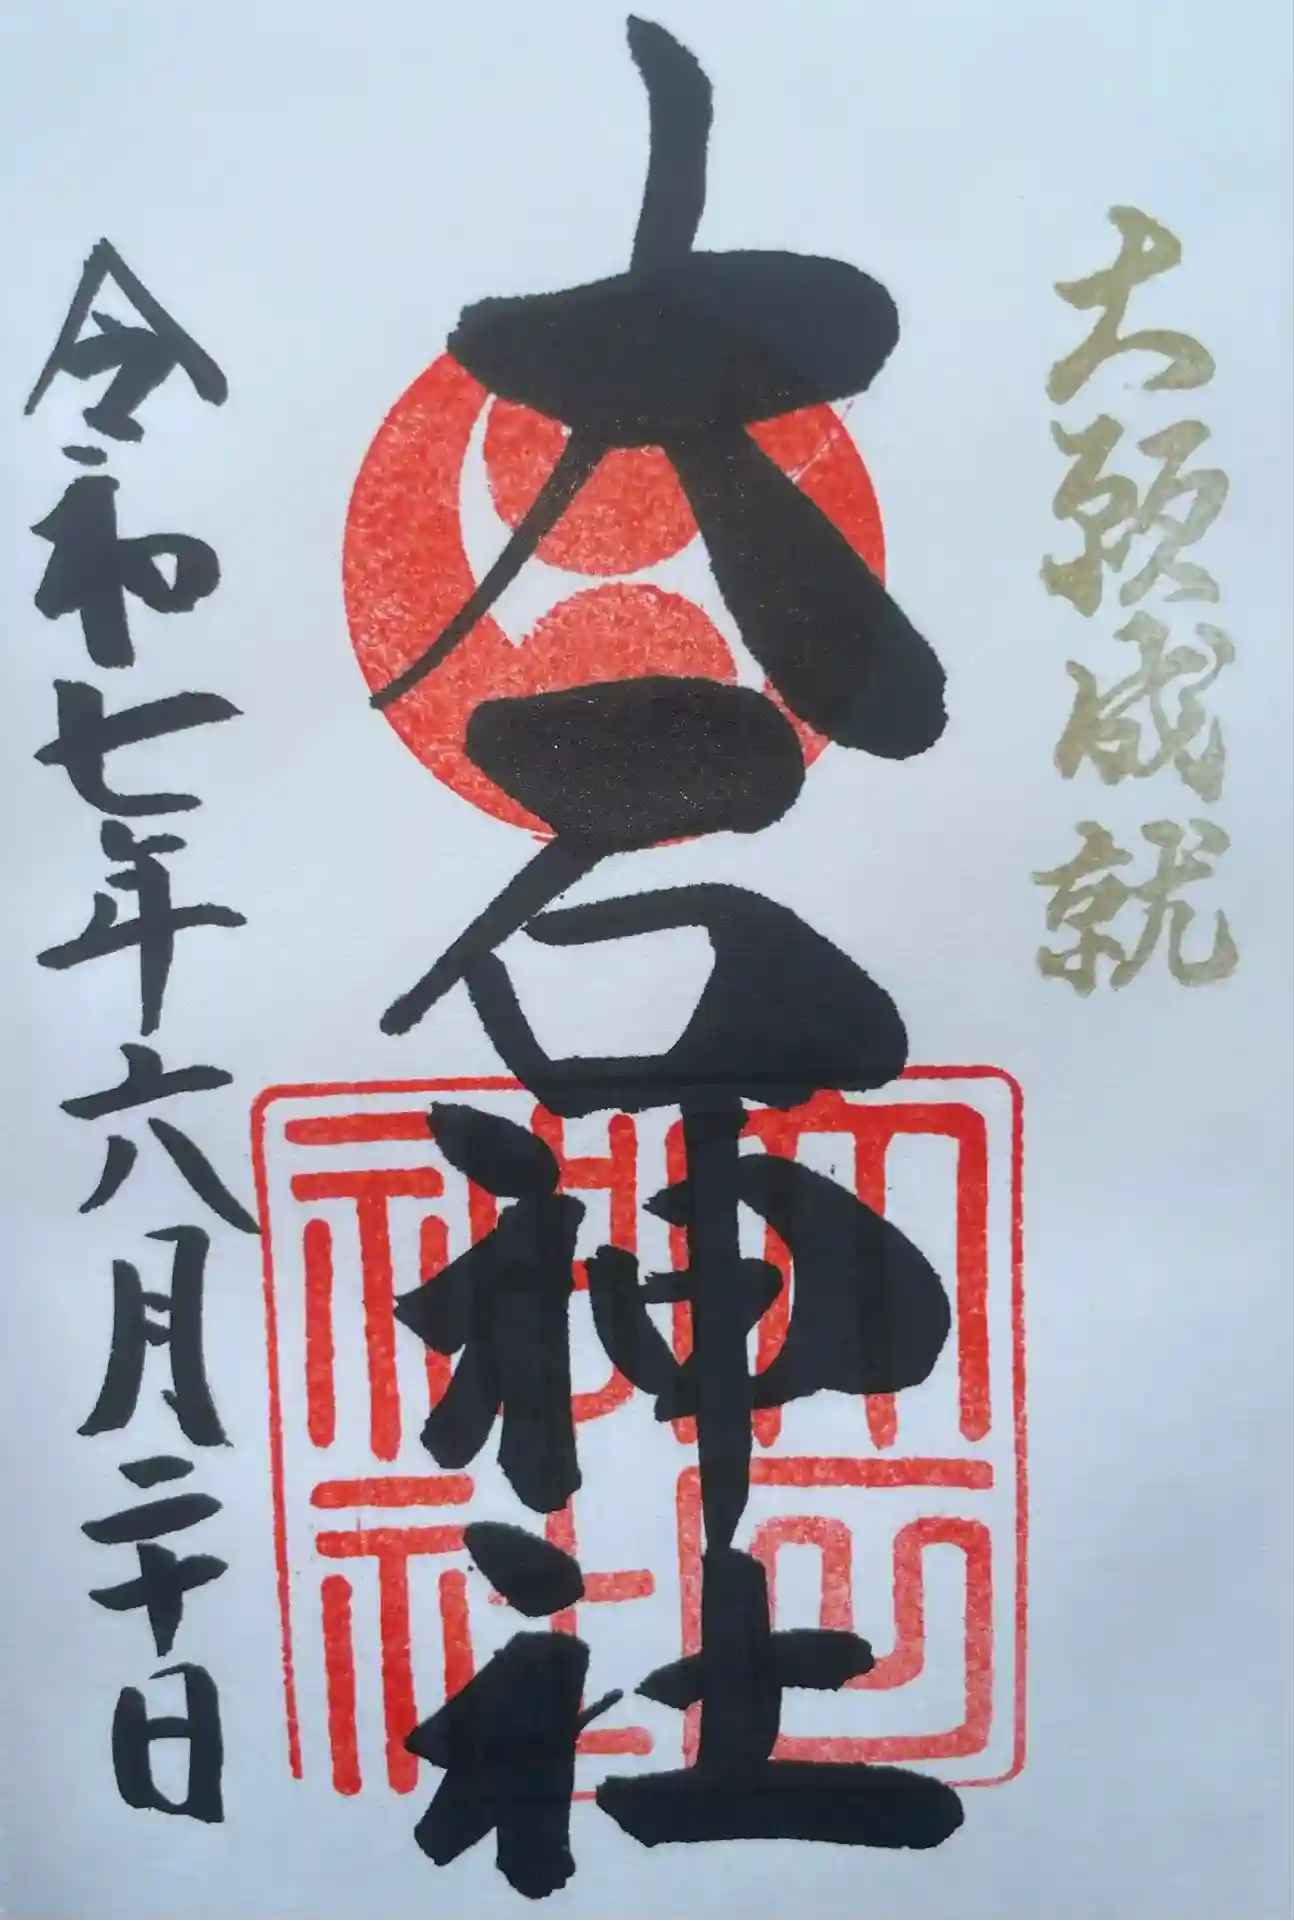 大願成就
大石神社
大石神社
令和七年六月二十日